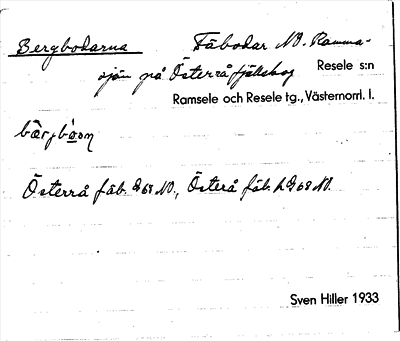 Bergbodarna Fäbodar NO. Ramma-
sjön på Österråfjällskog Resele s:n
Ramsele och Resele tg., Västernorrl. l.
Österrå fäb. 68 NO., Österå fäb. 68 NO.
Sven Hiller 1933